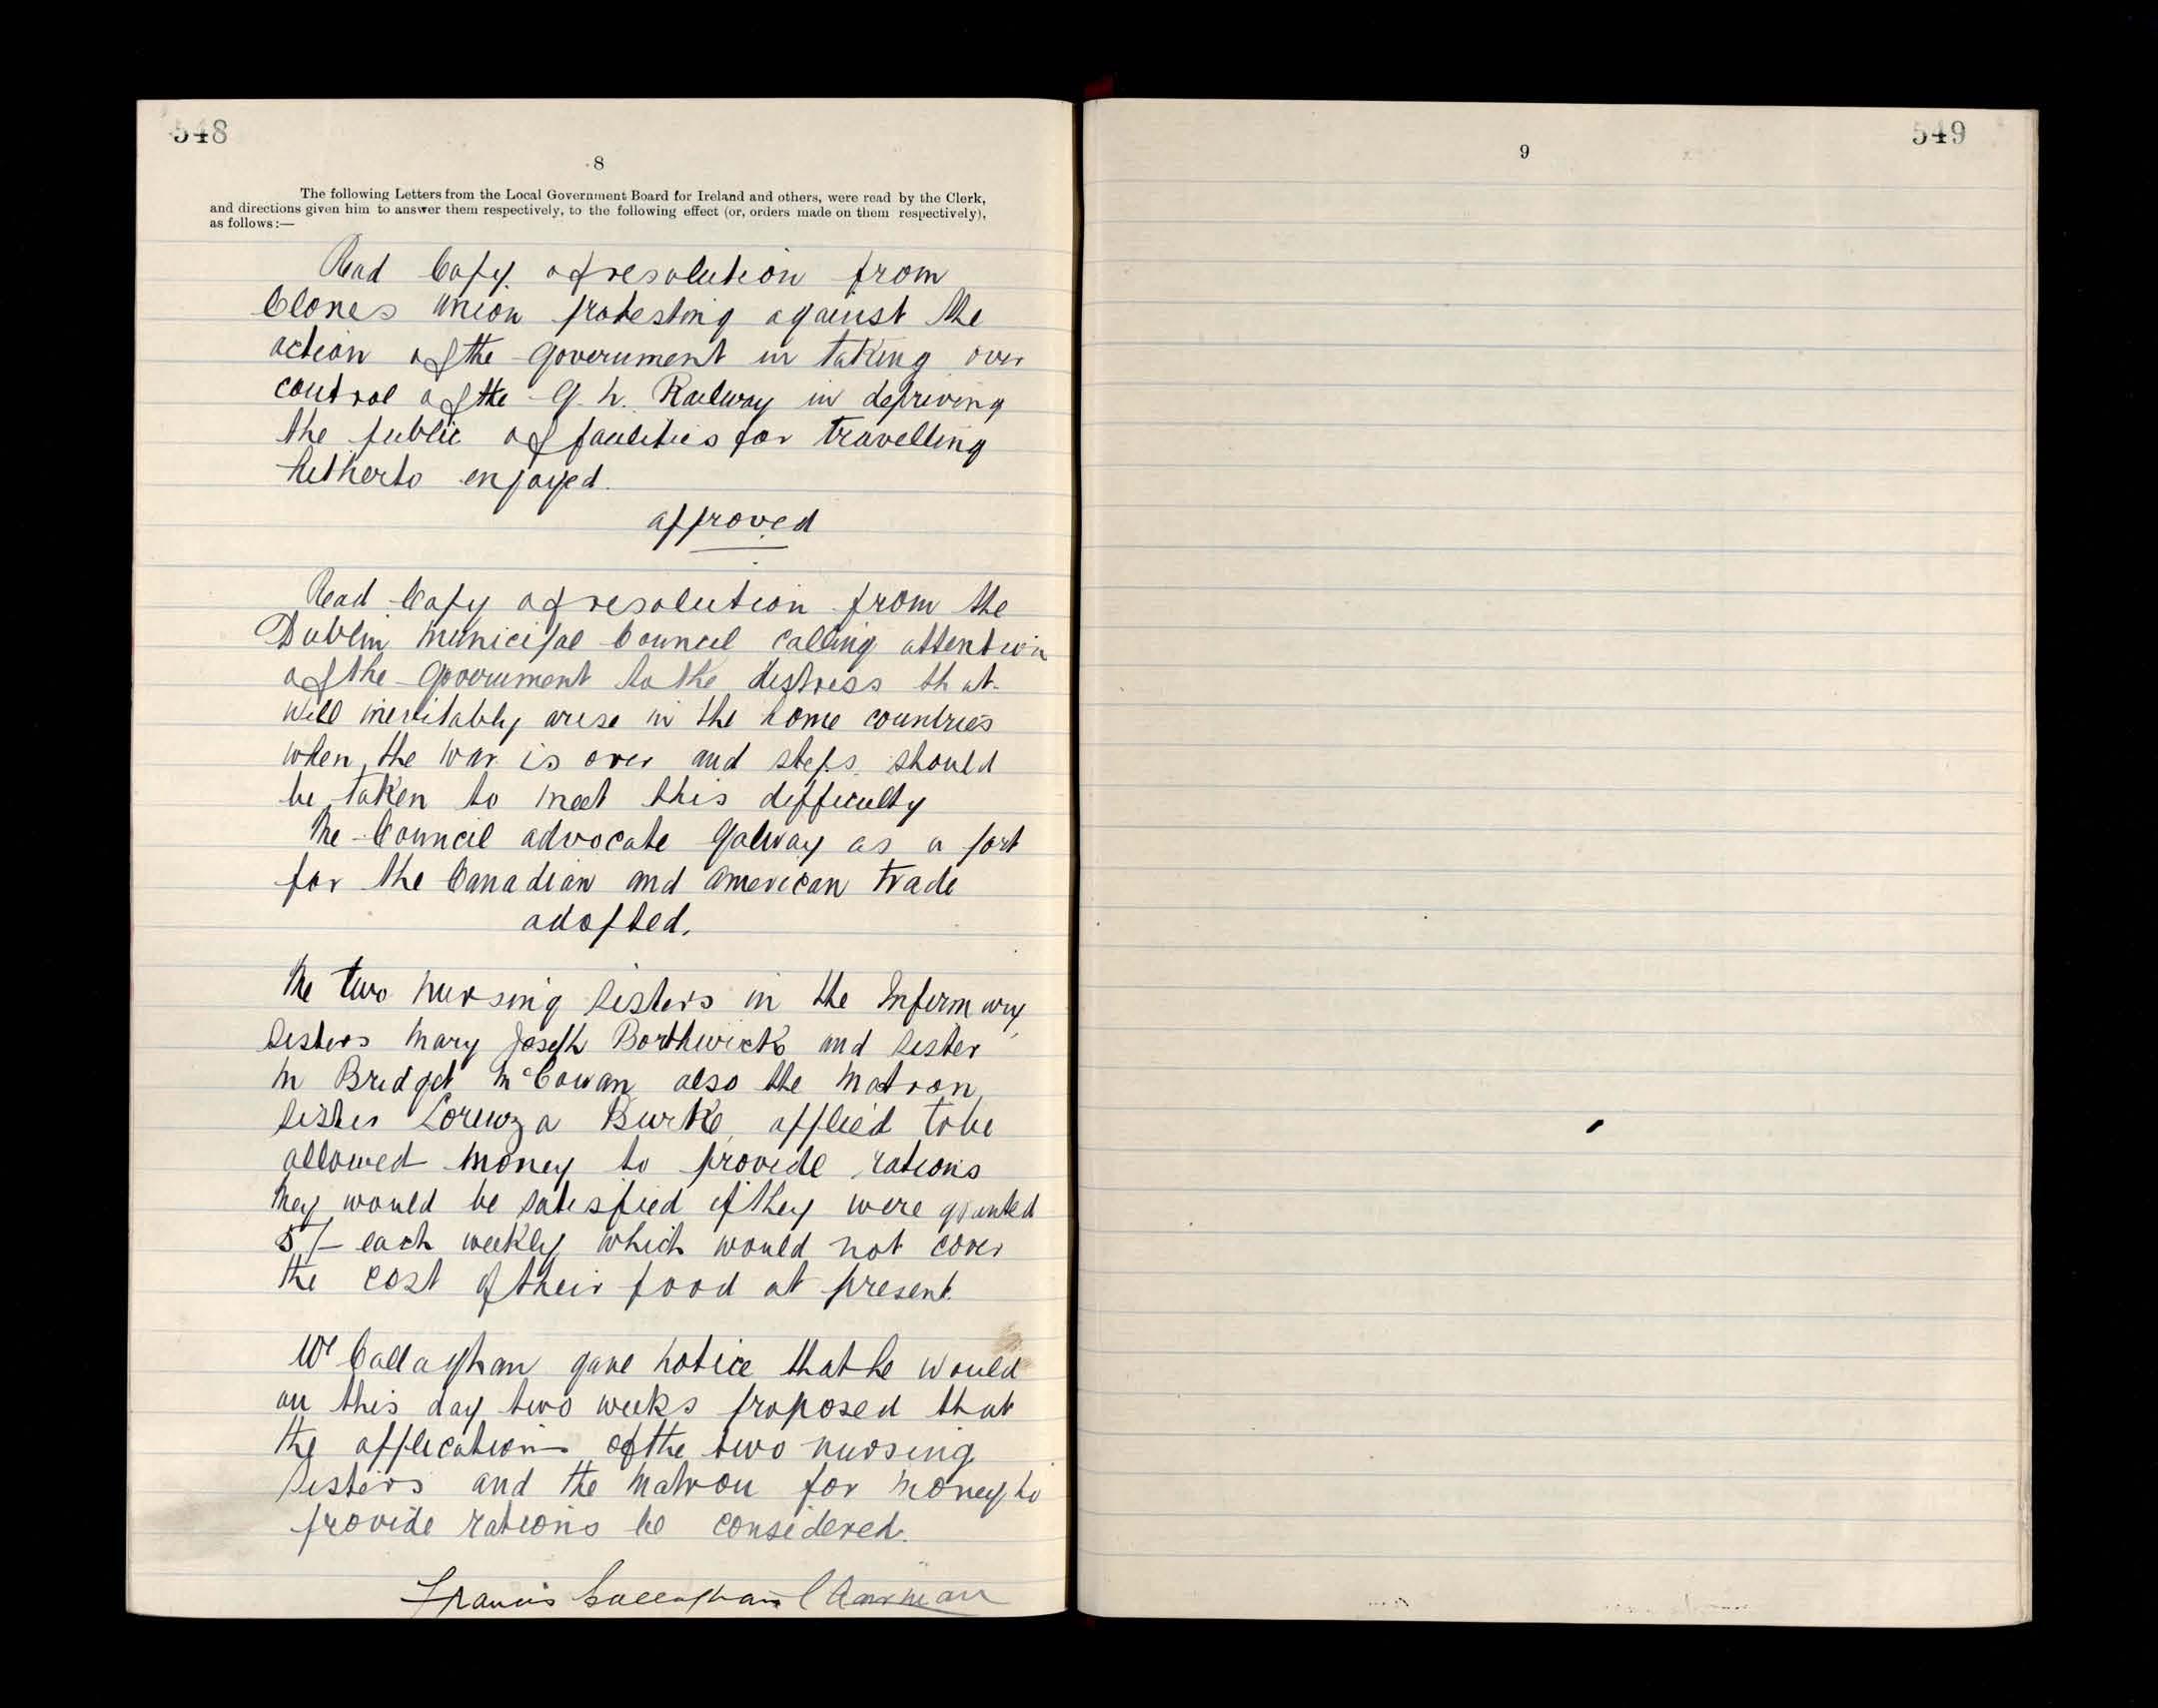 548
8
The following Letters from the Local Government Board for Ireland and others, were read by the Clerk,
and directions given him to answer them respectively, to the following effect (or, orders made on them respectively),
as follows:—
Read Copy of resolution from
Clones Union protesting against the
action of the Government in taking over
control of the G. N. Railway in depriving
the public of facilities for travelling
hitherto enjoyed.
approved
Read Copy of resolution from the
Dublin Municipal Council calling attention
of the Government to the distress that
will inevitably arise in the home countries
when the war is over and steps should
be taken to meet this difficulty
The Council advocate Galway as a port
for the Canadian and American trade
adopted.
The two nursing sisters in the Infirmary
Sisters Mary Joseph Borthwick and Sister
M Bridget McCowan also the Matron
Sister Lorenza Burke applied to be
allowed money to provide rations
They would be satisfied if they were granted
5/- each weekly which would not cover
the cost of their food at present.
Mr Callaghan gave notice that he would
on this day two weeks proposed that
the application of the two nursing
Sisters and the Matron for money to
provide rations be considered.
Francis Callaghan Chairman
9
549